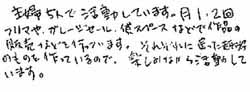 主婦5人で活動しています。月1,2回
フリマや、ガレージセール、低スペースなどで作品の
販売などを行っています。それぞれに違った
ものを作っているので、楽しみながら活動して
います。